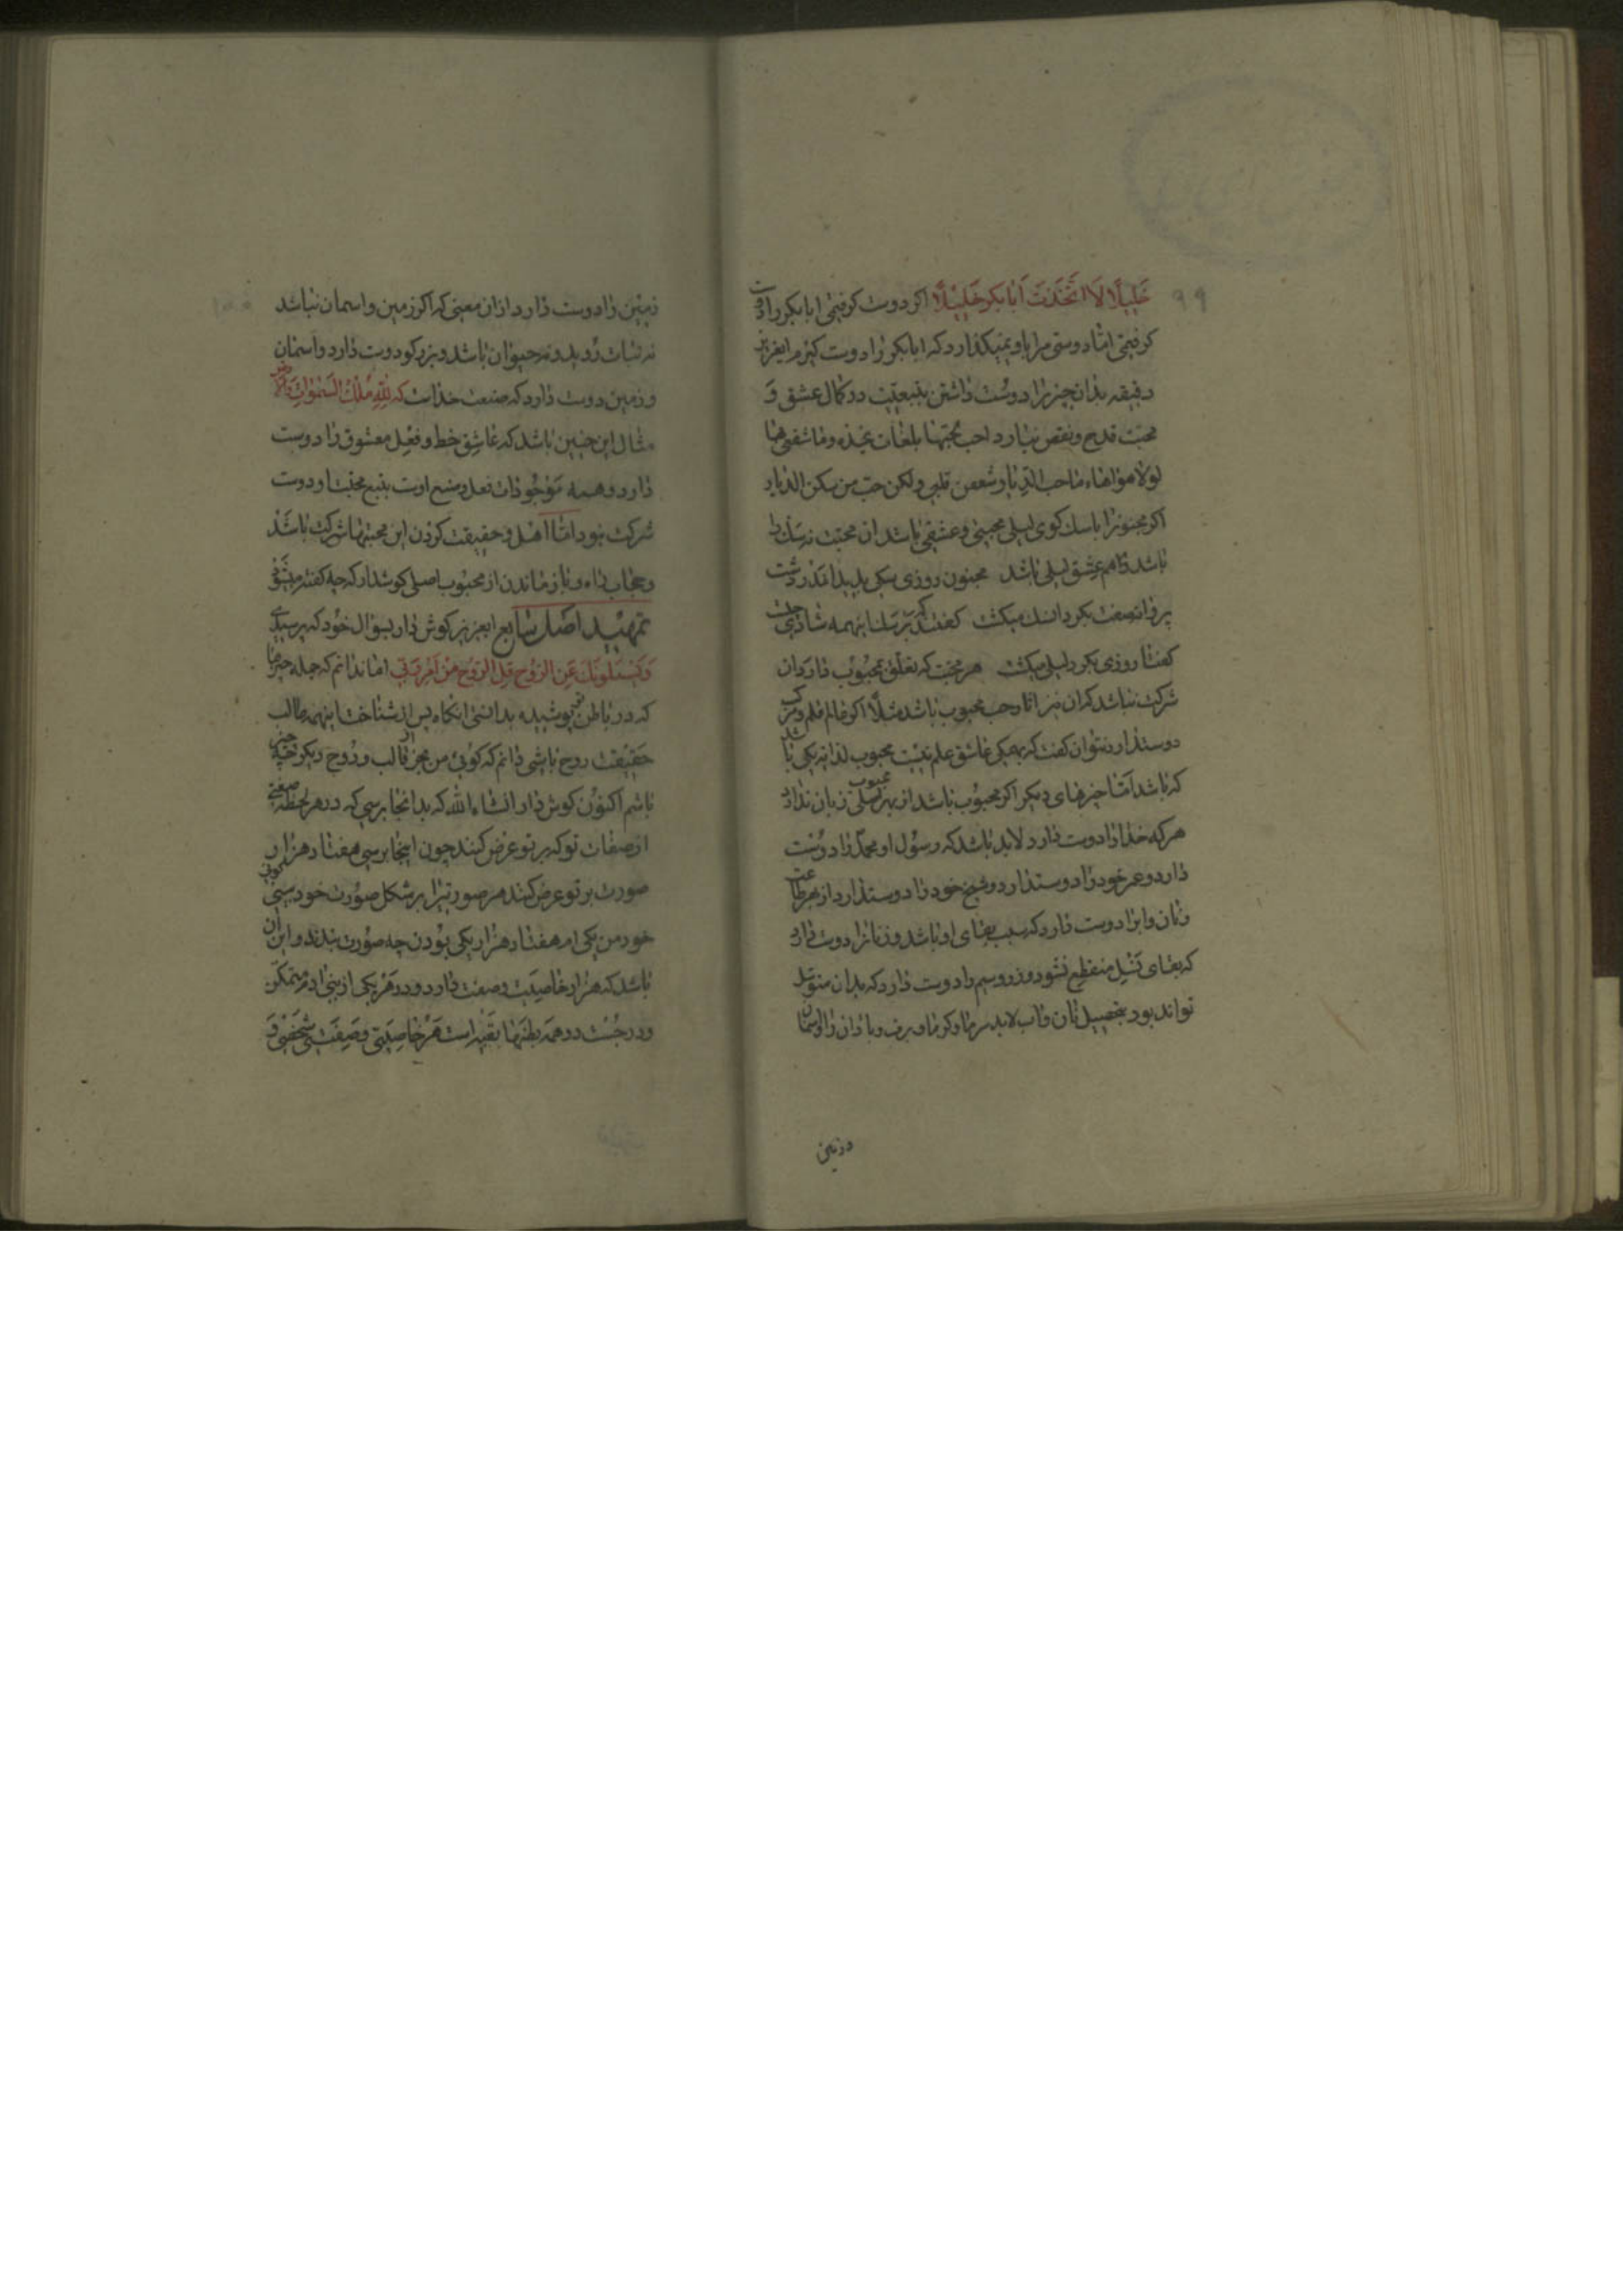 ۹۹
خَلِیلًا لَا اتَّخَذتَ اَبَابکر خَلِیْلًا اکر دوست کرفتمی ابابکر را دوست
کرفتمی امّا دوستی مرا باو نمیکذارد که ابابکر را دوست کیرم ایعزیز
دقیقه بدان چیزیرا دوست داشتن بتبعیّت در کمال عشق و
محبّت قدح و نقص نیارد احب بحبّها و ما شغفی بها
لولا هواها ما حب الدّیار شغفن قلبی ولکن حبّ من سکن الدیار
اکر مجنونرا با سک کوی لیلی محبتی و عشقی باشد ان محبّت نه سک را
باشد ذا هم عشق لیلی باشد مجنون روزی سکی بدید اندر دشت
پروانه صفت بکرد ان سک میکشت کفتند که بر سک اینهمه شادی چیست
کفتا روزی بکرد لیلی میکشت هر محبّت که تعلّق بمحبُوب دارد ان
شرکت نباشد که ان نیز اثار حب محبوب باشد مثلًا اکر عالم قلم و مرکب
دوستدارد نتوان کفت که بهمکی عاشق علم نیست محبوب لذاته یکی باشد
که باشد امّا چیزهای دیکر اکر محبُوب باشد از بهر محبوب اصلی زیان ندارد
هرکه خدا را دوست دارد لابد باشد که رسُول او محمّد را دوُست
دارد و عمر خود را دوستدارد و شیخ خود را دوستدارد از بهر طاعت
و نان و ابرا دوست دارد که سبب بقای او باشد و زنانرا دوست دارد
که بقای نَسْل منقطع نشود و زر و سیم را دوست دارد که بدان متوسّل
تواند بود بتحصیل نان و اب لابد سرما و کرما و برف و باران و اسمان
و زمین
۱۰۰
زمین را دوست دارد از ان معنی که اکر زمین و اسمان نباشد
نه نبات رُوید و نه حیوان باشد و برزکر دوست دارد و اسمان
و زمین دوست دارد که صنعت خداست که لِلّٰهِ مُلْكُ السَّمٰوٰاتِ وَالْاَرْضِ
مثال این چنین باشد که عاشق خط و فعل معشوق را دوست
دارد و همه مَوْجُودات فعل و صنع اوست بتبع محبّت او دوست
شرکت نبود امّا اهل و حقیقت کردن این محبّتها شرکت باشد
و حجاب راه و باز ماندن از محبُوب اصلی کوشدار که چه کفته میشود
تمهیْد اصْل سٰابع ایعزیز کوش دار بسؤال خُود که پرسیدی
وَیَسْئَلُونَكَ عَنِ الرُّوحِ قُلِ الرُّوحُ مِنْ اَمْرِ رَبّی اما ندانم که جمله چیزها
که در باطن تو پوشیده بدانستی انکاه پس از شناخت اینهمه طالب
حَقیقت روح باشی دانم که کوئی من بجز از قالب و رُوح دیکر چه چیز
باشم اکنُون کوش دار انشاء اللّٰه که بدانجا برسی که در هر لحظه صفتی
از صفات تو که بر تو عرض کنند چون اینجا برسی هفتاد هزار
صورت بر تو عرض کنند هر صورتیرا بر شکل صُورت خود بینی کوئی
خود من یکی ام هفتاد هزار یکی بُودن چه صُورت بندد و این ان
باشد که هزار خاصیّت و صفت دارد و در هَر یکی از بنی ادم متمکّن
و در جُست و در همه بطنها تعبیه است هَر خاصیّتی و صفتی شخصی و